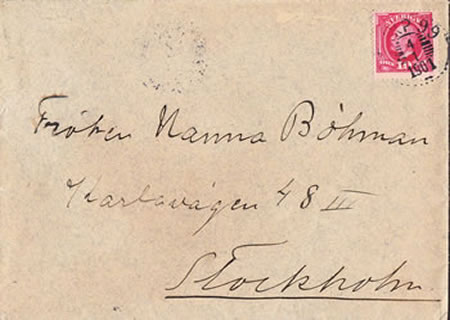 SVERIGE
4
1901
Fröken Nanna Böhman
Karlavägen 48 III
Stockholm